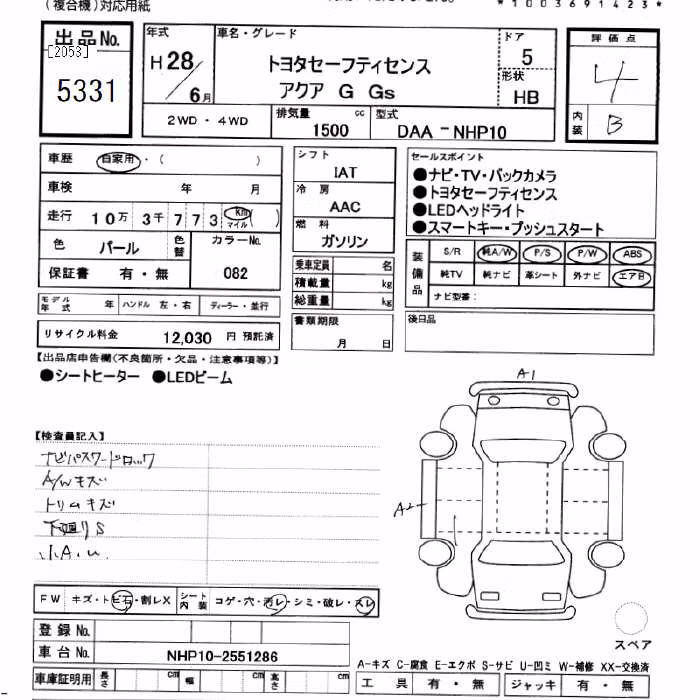 (複合機)対応用紙
*1003691423*
出品No.
[2053]
5331
年式
H28/6月
車名・グレード
トヨタセーフティセンス
アクア G Gs
ドア
5
形状
HB
評価点
4
内装
B
2WD・4WD
排気量
1500 cc
型式
DAA-NHP10
車歴 自家用・( )
車検 年 月
走行 10万 3千 7 7 3 km マイル ( )
色 パール 色替
カラーNo.
082
保証書 有・無
シフト
IAT
冷房
AAC
燃料
ガソリン
乗車定員 名
積載量 kg
総重量 kg
セールスポイント
●ナビ・TV・バックカメラ
●トヨタセーフティセンス
●LEDヘッドライト
●スマートキー・プッシュスタート
装備品
S/R 純A/W P/S P/W ABS
純TV 純ナビ 革シート 外ナビ エアB
ナビ型番:
モデル年式 年 ハンドル 左・右 ディーラー・並行
リサイクル料金 12,030 円 預託済
書類期限
月 日
後日品
【出品店申告欄(不良箇所・欠品・注意事項等)】
●シートヒーター ●LEDビーム
【検査員記入】
ナビパスワードロック
A/Wキズ
トリムキズ
下回りS
小A.U.
A1
A2
FW キズ・トビ石・割レX シート内装 コゲ・穴・汚レ・シミ・破レ・スレ
登録No.
車台No. NHP10-2551286
車庫証明用 長さ cm 幅 cm 高さ cm
スペア
A-キズ C-腐食 E-エクボ S-サビ U-凹ミ W-補修 XX-交換済
工具 有・無 ジャッキ 有・無